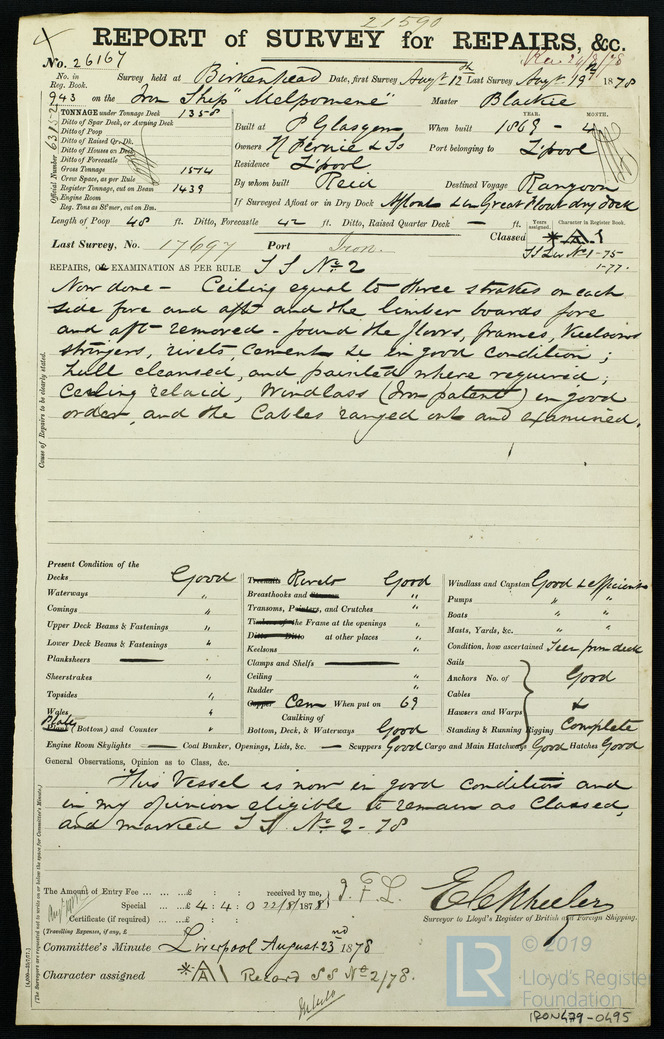 21590
REPORT of SURVEY for REPAIRS, &c.
No. 26167
Rec 24/8/78
No. in Reg. Book.
Survey held at Birkenhead Date, first Survey Augt 12th Last Survey Augt 19th 1878
943 on the Iron Ship "Melpomene" Master Blackie
TONNAGE under Tonnage Deck 1358
Ditto of Spar Deck, or Awning Deck
Ditto of Poop
Ditto of Raised Qr. Dk.
Ditto of Houses on Deck
Ditto of Forecastle
Gross Tonnage 1514
Crew Space, as per Rule
Register Tonnage, cut on Beam 1439
Engine Room
Reg. Tons as St'mer, cut on Bm.
Official Number
YEAR. MONTH.
Built at P Glasgow When built 1869 - 4
Owners N Fernie & So Port belonging to L'pool
Residence L'pool
By whom built Reid Destined Voyage Rangoon
If Surveyed Afloat or in Dry Dock Afloat & in Great Float dry dock
Length of Poop 48 ft. Ditto, Forecastle 42 ft. Ditto, Raised Quarter Deck — ft.
Years assigned. Character in Register Book.
Classed A1
Last Survey, No. 17697 Port Iron.
SS Liv No 1-75
1-77.
REPAIRS, OR EXAMINATION AS PER RULE S S No 2
Now done - Ceiling equal to three strakes on each
side fore and aft and the limber boards fore
and aft removed - found the floors, frames, Keelsons
stringers, rivets, cement &c in good condition;
hull cleansed, and painted where required;
Ceiling relaid, Windlass (Iron patent) in good
order, and the Cables ranged out and examined.
Cause of Repairs to be clearly stated.
Present Condition of the
Decks Good
Waterways "
Comings "
Upper Deck Beams & Fastenings "
Lower Deck Beams & Fastenings "
Planksheers —
Sheerstrakes "
Topsides "
Wales "
Plates
Plank (Bottom) and Counter "
Treenails Rivets Good
Breasthooks and Stemson "
Transoms, Pointers, and Crutches "
Timbers of the Frame at the openings "
Ditto Ditto at other places "
Keelsons "
Clamps and Shelfs —
Ceiling "
Rudder "
Copper Cem When put on 69
Caulking of
Bottom, Deck, & Waterways Good
Windlass and Capstan Good & efficient
Pumps " "
Boats " "
Masts, Yards, &c. " "
Condition, how ascertained Seen from deck
Sails
Anchors No. of Good
Cables &
Hawsers and Warps
Standing & Running Rigging Complete
Engine Room Skylights — Coal Bunker, Openings, Lids, &c. — Scuppers Good Cargo and Main Hatchways Good Hatches Good
General Observations, Opinion as to Class, &c.
This Vessel is now in good condition and
in my opinion eligible to remain as Classed,
and marked S S. No 2 - 78
The Amount of Entry Fee ... ... £ : : received by me,
Special ... £ 4 . 4 . 0 22/8/1878 J. F. L.
Certificate (if required) ... £ : :
(Travelling Expenses, if any, £ )
E C Wheeler
Surveyor to Lloyd's Register of British and Foreign Shipping.
Committee's Minute Liverpool August 23nd 1878
Character assigned A 1 Record S S No 2/78.
(The Surveyors are requested not to write on or below the space for Committee's Minute.)
© 2019
LR
Lloyd's Register
Foundation
IRON479-0495